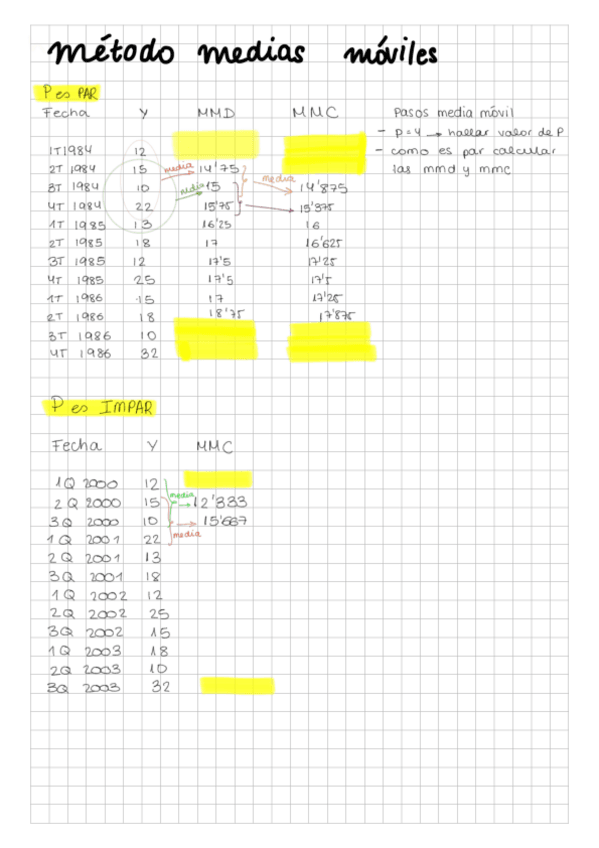 método medias móviles
P es PAR
Fecha Y MMD MMC Pasos media móvil
- p=4 → hallar valor de P
1T1984 12
- como es par calcular
2T 1984 15 media 14'75 las mmd y mmc
3T 1984 10 media 15 media 14'875
4T 1984 22 15'75 15'975
1T 1985 13 16'25 16
2T 1985 18 17 16'625
3T 1985 12 17'5 17'25
4T 1985 25 17'5 17'5
1T 1986 15 17 17'25
2T 1986 18 18'75 17'875
3T 1986 10
4T 1986 32
P es IMPAR
Fecha Y MMC
1Q 2000 12
media
2Q 2000 15 12'333
3Q 2000 10 15'667
1Q 2001 22 media
2Q 2001 13
3Q 2001 18
1Q 2002 12
2Q 2002 25
3Q 2002 15
1Q 2003 18
2Q 2003 10
3Q 2003 32